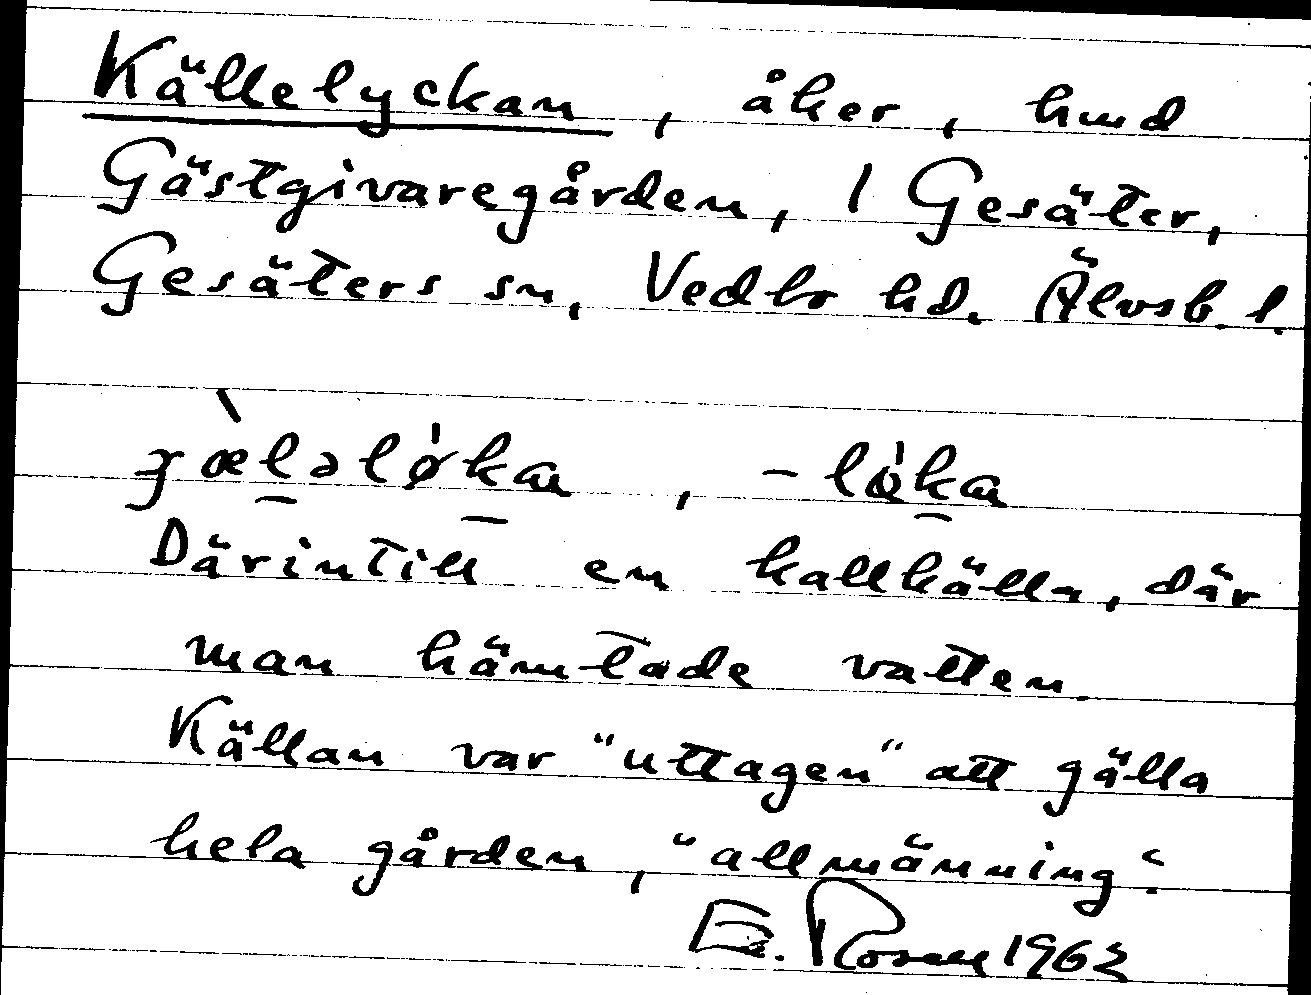 Källelyckan, åker, hmd
Gästgivaregården, 1 Gesäter,
Gesäters sn, Vedbo hd. Älvsb. l.
Därintill en kallkälla, där
man hämtade vatten.
Källan var "uttagen" att gälla
hela gården, "allmänning".
1962